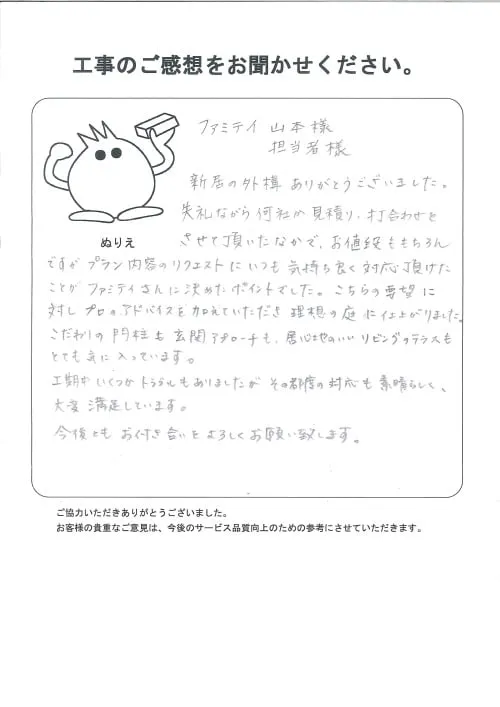 工事のご感想をお聞かせください。
ファミテイ 山本様
担当者様
ぬりえ
新居の外構 ありがとうございました。
失礼ながら何社か見積り、打合わせを
させて頂いたなかで、お値段ももちろん
ですが プラン内容のリクエストにいつも 気持ち良く 対応頂けた
ことが ファミテイさんに決めたポイントでした。こちらの要望に
対し プロのアドバイスを加えていただき 理想の庭に仕上がりました。
こだわりの門柱も 玄関アプローチも、居心地のいいリビングのテラスも
とても気に入っています。
工期中いくつかトラブルもありましたが その都度の対応も素晴らしく、
大変満足しています。
今後とも お付き合いをよろしくお願い致します。
ご協力いただきありがとうございました。
お客様の貴重なご意見は、今後のサービス品質向上のための参考にさせていただきます。